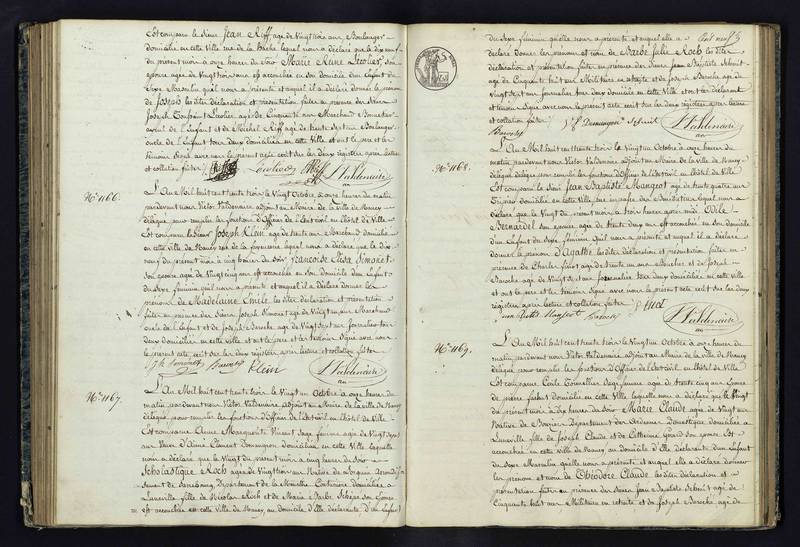 Est comparu le Sieur Jean Riff, age de Vingt trois ans Boulanger
domicilié en cette Ville rue de la Hache lequel nous a déclaré que le dix neuf
du présent mois à onze heures du soir Marie Reine Lecolier, Son
épouse agée de Vingt trois ans est accouchée en son domicile d'un Enfant du
Sexe Masculin qu'il nous a présenté et auquel il a déclaré donner le prénom
de Joseph les dites déclaration et présentation faites en présence des Sieurs
Joseph Lecolier age de Cinquante ans Marchand
ayeul de l'Enfant et de Michel Riff age de trente Sept ans Boulanger
oncle de l'Enfant tous deux domiciliés en cette Ville et ont le père et les
témoins Signé avec nous le présent acte écrit sur les deux registres après lecture
et collation faites
Riff Valdenaire
N° 1166.
L'An Mil huit cent trente trois le Vingt Octobre à onze heures du matin
pardevant nous Victor Valdenaire adjoint au Maire de la Ville de Nancy
délégué pour remplir les fonctions d'Officier de l'État civil en l'hôtel de Ville
Est comparu le Sieur Joseph Klein age de trente ans Marchand domicilié
en cette Ville de Nancy rue de la lequel nous a déclaré que le dix
neuf du présent mois à cinq heures du soir Françoise Elisa Simonet
Son épouse agée de Vingt cinq ans est accouchée en son domicile d'un Enfant
du Sexe féminin qu'il nous a présenté et auquel il a déclaré donner les
prénoms de Madelaine Emile les dites déclaration et présentation
faites en présence des Sieurs Joseph Simonet age de Vingt un ans Marchand
oncle de l'Enfant et de Joseph Baroche age de Vingt Sept ans Journalier tous
deux domiciliés en cette Ville et ont le père et les témoins Signé avec nous
le présent acte écrit sur les deux registres après lecture et collation faites
Simonet Baroche Klein Valdenaire
N° 1167.
L'An Mil huit cent trente trois le Vingt un Octobre à onze heures du
matin, pardevant nous Victor Valdenaire adjoint au Maire de la ville de Nancy
délégué pour remplir les fonctions d'Officier de l'État civil en l'hôtel de Ville
Est comparue Anne Marguerite Vincent Sage femme agée de Vingt Sept
ans Veuve d'Aimé Clément Domangeon domiciliée en cette Ville Laquelle
nous a déclaré que le Vingt du présent mois à cinq heures du Soir
Scholastique Roch agée de Vingt trois ans Native de Lorquin Arrondis
sement de Sarrebourg, Département de la Meurthe Couturière domiciliée à
Lunéville, fille de Nicolas Roch et de Marie Barbe
est accouchée en cette Ville de Nancy, au domicile d'Elle déclarante d'un Enfant
du Sexe féminin qu'elle nous a présenté et auquel elle a
déclaré donner les prénoms et nom de Barbe Julie Roch les dites
déclaration et présentation faites en présence des Sieurs Jean Baptiste Schmit
age de Cinquante huit ans Militaire en retraite et de Joseph Baroche age de
Vingt Sept ans Journalier tous deux domiciliés en cette Ville et ont la déclarante
et témoins Signé avec nous le présent acte écrit sur les deux registres après lecture
et collation faites
Vve Domangeon Schmit
Baroche Valdenaire
N° 1168.
L'An Mil huit cent trente trois le Vingt un Octobre à onze heures du
matin pardevant nous Victor Valdenaire adjoint au Maire de la ville de Nancy
délégué pour remplir les fonctions d'Officier de l'État civil en l'hôtel de Ville
Est comparu le Sieur Jean Baptiste Mangeot age de trente quatre ans
domicilié en cette Ville, rue lequel nous a
déclaré que le Vingt du présent mois à trois heures après midi Odile
Bernardel Son épouse agée de trente deux ans est accouchée en son domicile
d'un Enfant du Sexe féminin qu'il nous a présenté et auquel il a déclaré
donner le prénom d'Agathe les dites déclaration et présentation faites en
présence de Charles age de trente un ans et de Joseph
Baroche age de Vingt Sept ans Journalier tous deux domiciliés en cette ville
et ont le père et les témoins Signé avec nous le présent acte écrit sur les deux
registres après lecture et collation faites
Jean Baptiste Mangeot Baroche Valdenaire
N° 1169.
L'An Mil huit cent trente trois le Vingt un Octobre à onze heures du
matin pardevant nous Victor Valdenaire adjoint au Maire de la Ville de Nancy
délégué pour remplir les fonctions d'Officier de l'État civil en l'hôtel de Ville
Est comparue Sage femme agée de trente cinq ans Epouse
de domiciliée en cette Ville laquelle nous a déclaré que le Vingt
du présent mois à dix heures du Soir Marie Claude agée de Vingt ans
Native de Département des Ardennes Domestique domiciliée à
Lunéville, fille de Joseph Claude et de Catherine Girard son épouse Est
accouchée en cette Ville de Nancy, au domicile d'Elle déclarante d'un Enfant
du Sexe Masculin qu'elle nous a présenté et auquel elle a déclaré donner
les prénom et nom de Théodore Claude les dites déclaration et
présentation faites en présence des Sieurs Jean Baptiste Schmit age de
Cinquante huit ans Militaire en retraite et de Joseph Baroche age de